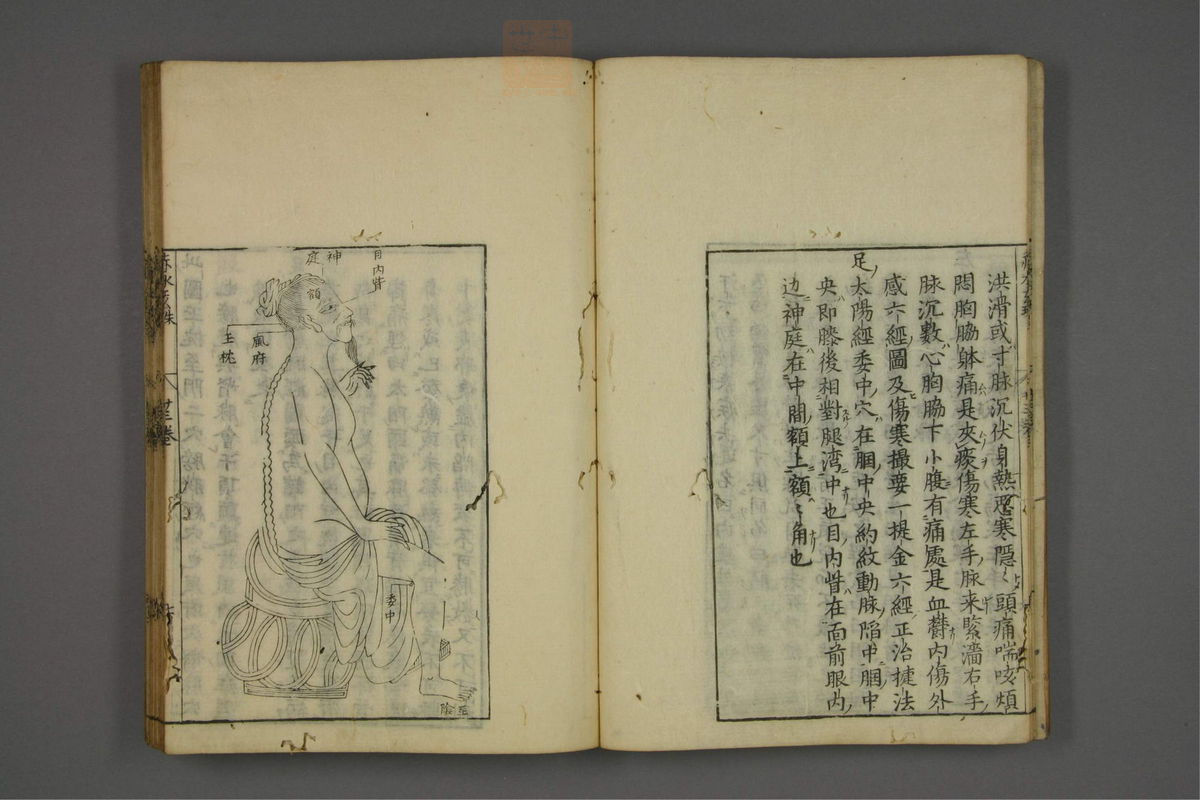 洪滑或寸脉沉伏身熱惡寒隠〻頭痛喘咳煩
悶胸脇躰痛是夾痰傷寒左手脉来緊濇右手
脉沉數心胸脇下小腹有痛處是血欝内傷外
感六經圖及傷寒撮要一提金六經正治捷法
足太陽經委中穴在膕中央約紋動脉陷中膕中
央即膝後相對腿湾中也目内眥在面前眼内
边神庭在中間額上額〻角也
目内眥
神庭
額
風府
玉枕
委中
至陰